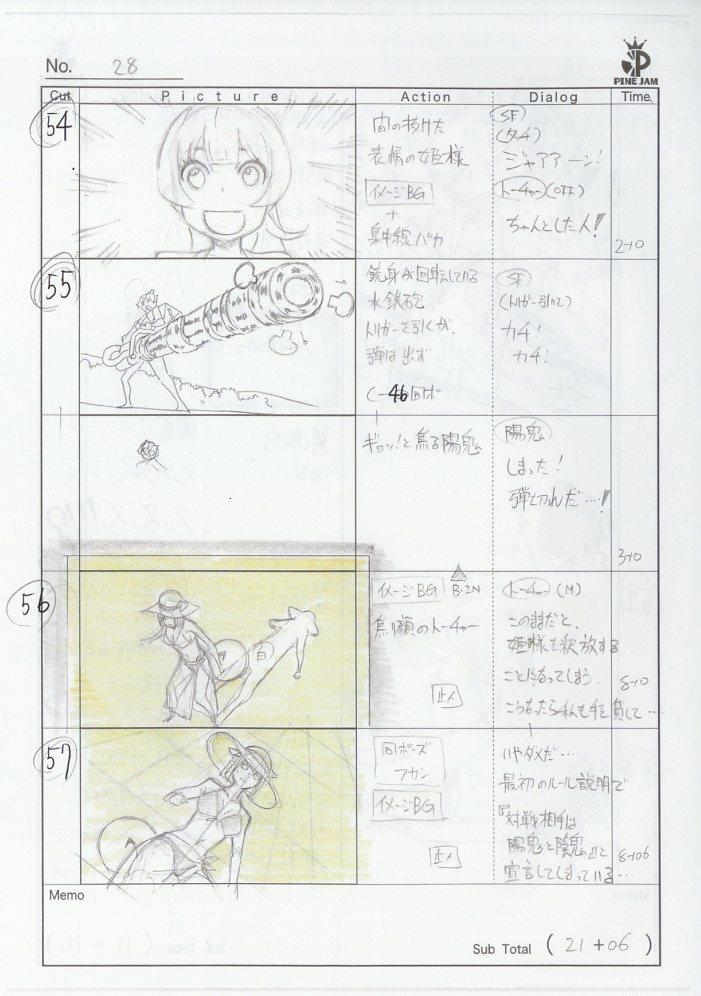 No. 28
PINE JAM
Cut Picture Action Dialog Time
54
間の抜けた
表情の姫様
イメージBG
+
集中線パカ
SE
ジャアアーン!
トーチャー(OFF)
ちゃんとした人!!
2+0
55
銃身が回転している
水鉄砲
トリガーを引くが、
弾は出ず
C-46同ポ
SE
(トリガー引いて)
カチ!
カチ!
ギョッ!と焦る陽鬼
陽鬼
しまった!
弾切れだ…!!
3+0
56
白
イメージBG
B.IN
焦り顔のトーチャー
止メ
トーチャー(M)
このままだと、
姫様を釈放する
ことになってしまう
こうなったら私も手を貸して…
8+0
57
同ポーズ
フカン
イメージBG
止メ
いやダメだ…
最初のルール説明で
『対戦相手は
陽鬼と陰鬼』と
宣言してしまっている…
8+06
Memo
Sub Total ( 21+06 )